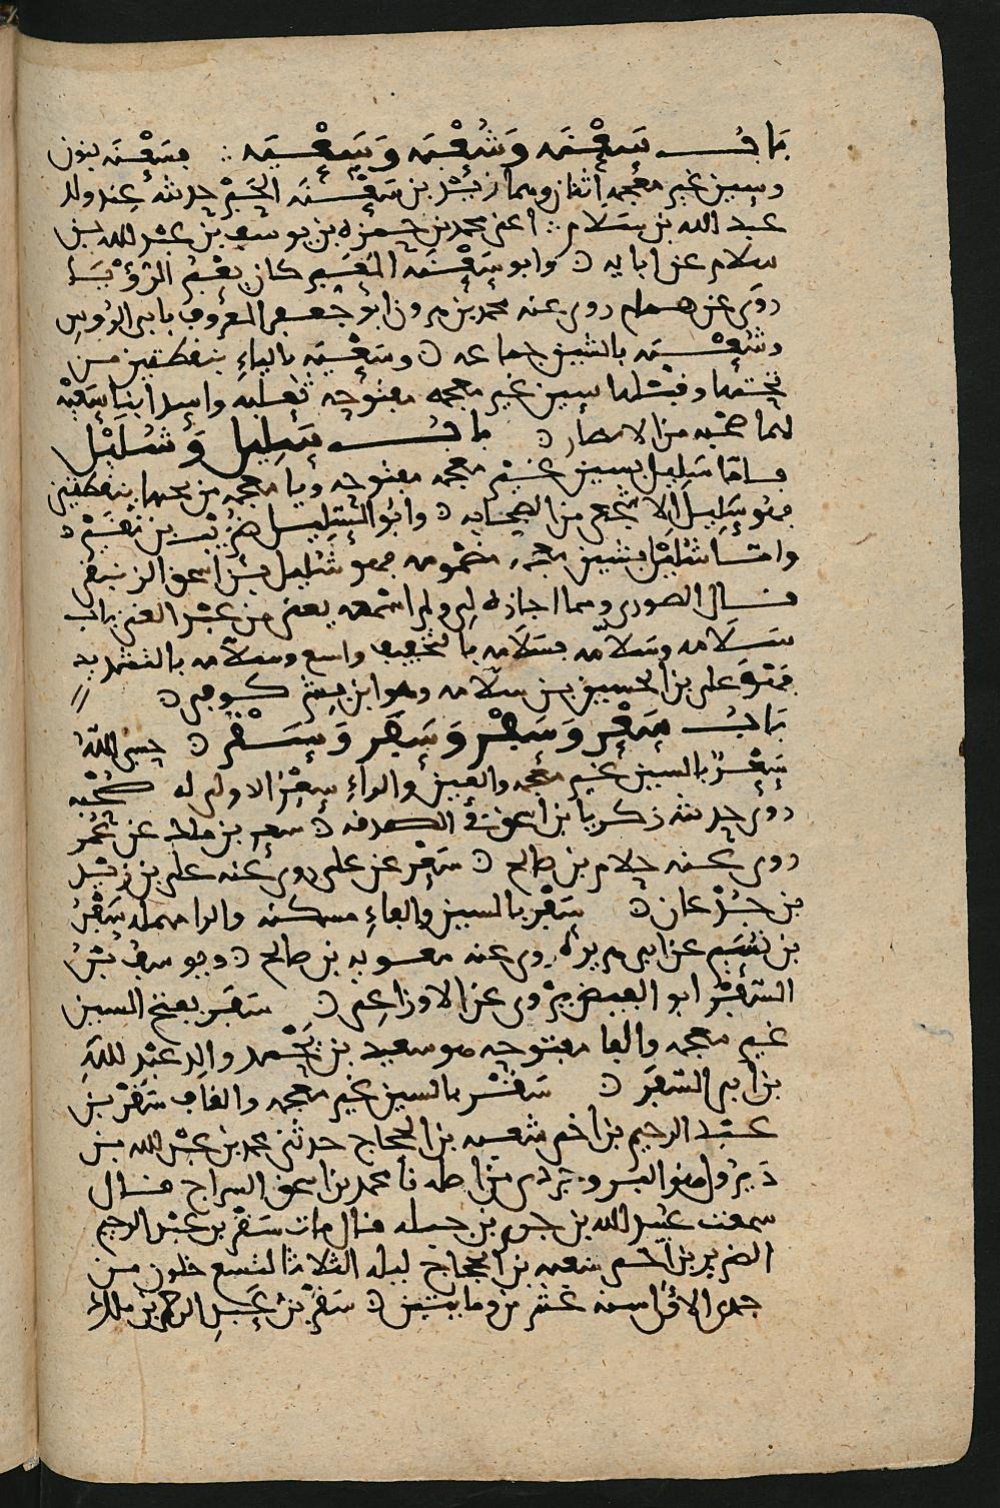 باب سَعْنَه وَشُعْبَه وَسَعْيَه ∴ فسَعْنَه بنون
وسين غير معجمه اثنان وهما زيد بن سَعْنَه الحَبْر حديثه عند ولد
عبد الله بن سلام ∴ اعني محمد بن حمزه بن يوسف بن عبد الله بن
سلام عن ابايه ٥ وابو سَعْنَه كان يعبر الرؤيا
روى عن همام روى عنه محمد بن ابو جعفر المعروف بابي
وشُعْبَه بالشين جماعه ٥ وسَعْيَه بالياء بنقطتين من
تحتها وقبلها سين غير معجمه مفتوحه ثعلبه واسد ابنا سَعْيَه
لهما صحبه من الانصار ٥ باب سَلِيل وَشُلَيْل
فاما سَلِيل بسين غير معجمه مفتوحه ويا معجمه من تحتها بنقطتين
فهو سَلِيل الاشجعي من الصحابه ٥ وابو السَّلِيل ضُرَيْب بن نُقَيْر ٥
واما شُلَيْل بشين معجمه مضمومه فهو شُلَيْل بن اسحق
قال الصوري ومما اجازه لي ولم اسمعه يعني من عبد الغني باب
سَلَامه وسَلّامه فسَلَامه بالتخفيف واسع وسلّامه بالتشديد
فهو علي بن الحسين بن سلّامه وهو ابن كوفي ٥
باب سَعْر وَسَفْر وَسَفَر وَسَقْر ٥
سَعْر بالسين غير معجمه والعين والراء سِعْر الاولى له صُحْبَه
روى حديثه زكريا بن اسحق في الصدقه ٥ سعر بن مالك عن عُمَر
روى عنه حلام بن صالح ٥ سَعْر عن علي روى عنه علي بن زيد
بن جُدْعان ٥ سَفْر بالسين والفاء مسكنه والرا مهمله سَفْر
بن نُسَيْر عن ابي هريره روى عنه معويه بن صالح ٥ ويوسف بن
السَّفْر ابو الفيض يروي عن الاوزاعي ٥ سَفَر بفتح السين
غير معجمه والفا مفتوحه هو سعيد بن يُحْمِد والد عبد الله
بن ابي السَّفَر ٥ سَقْر بالسين غير معجمه والقاف سَقْر بن
عبد الرحيم بن اخي شعبه بن الحجاج حدثني محمد بن عبد الله بن
طه نا محمد بن اسحق السراج قال
سمعت عبد الله بن جرير بن جبله قال مات سَقْر بن عبد الرحيم
الضرير بن اخي شعبه بن الحجاج ليله الثلاثا لتسع خلون من
جمدى الاولى سنه عشر ومايتين ٥ سَقْر بن عبد الرحمن بن ملك